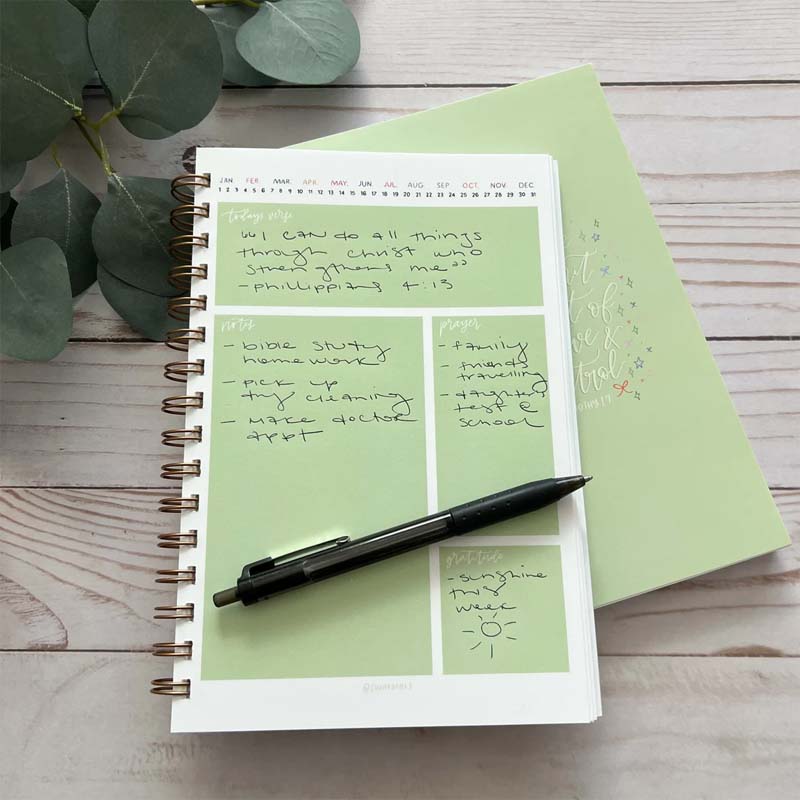 JAN FEB. MAR. APR. MAY. JUN JUL. AUG SEP OCT. NOV. DEC.
1 2 3 4 5 6 7 8 9 10 11 12 13 14 15 16 17 18 19 20 21 22 23 24 25 26 27 28 29 30 31
todays verse
"I can do all things
through Christ who
strengthens me"
- Phillippians 4:13
notes
- bible study
homework
- pick up
dry cleaning
- make doctor
appt
prayer
- family
- friends
travelling
- daughters
test @
school
gratitude
- sunshine
this
week
of
&